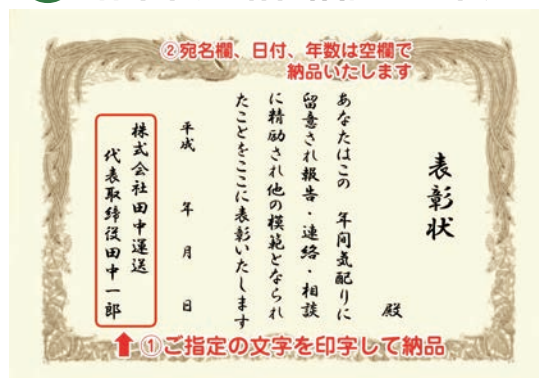 ②宛名欄、日付、年数は空欄で
納品いたします
表彰状
殿
あなたはこの 年間気配りに
留意され報告・連絡・相談
に精励され他の模範となられ
たことをここに表彰いたします
平成 年 月 日
株式会社田中運送
代表取締役田中一郎
①ご指定の文字を印字して納品